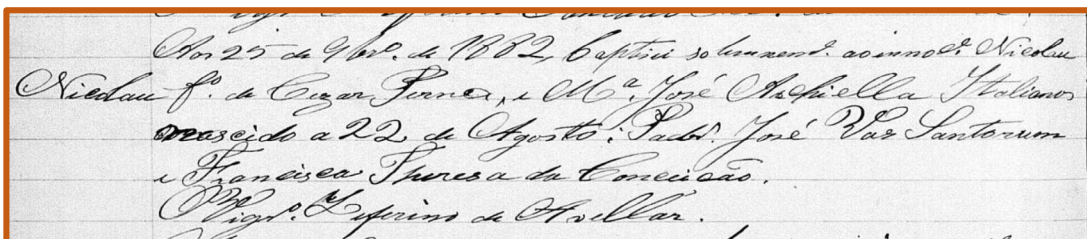 Aos 25 de 9brº. de 1882, baptisei solemnemᵗ. ao innoᵉ. Nicolau
Nicolau fº. de Cezar Perna, e Mª. José Italianos
nascido a 22 de Agosto: Padrˢ. José Vas Santorum
e Francisca Thereza da Conceição.
O Vigrº. Zeferino de Avellar.